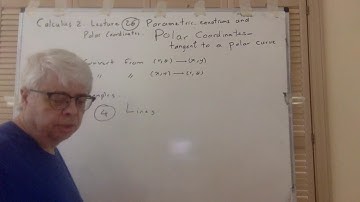 Calculus 2 Lecture 26 Parametric equations and
Polar Coordinates. Polar Coordinates-
tangent to a polar curve
Convert from (r,θ) → (x,y)
" " (x,y) → (r,θ)
4 Lines